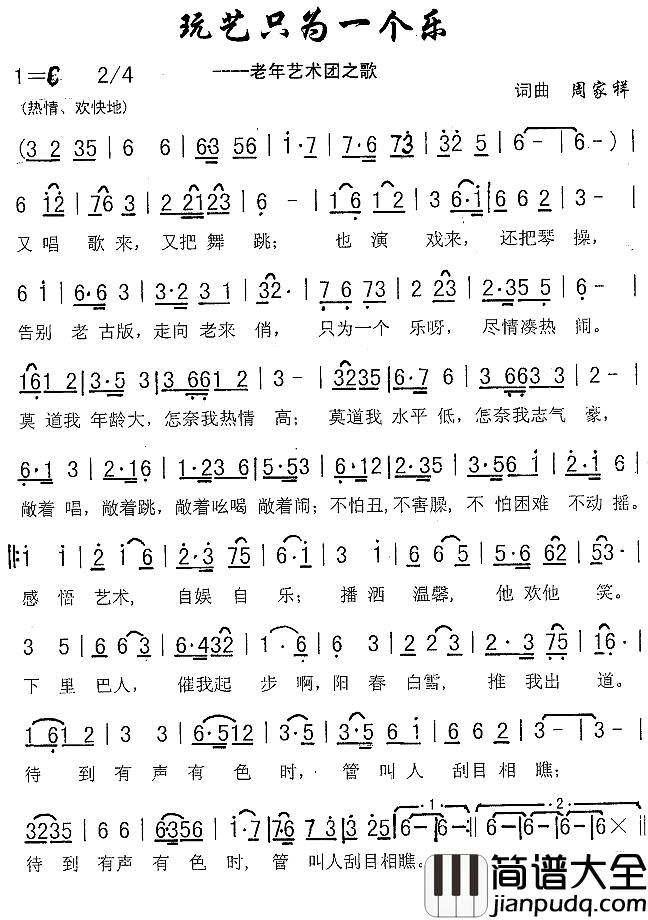 玩艺只为一个乐
1=C 2/4 ----老年艺术团之歌
(热情、欢快地) 词曲 周家祥
(3 2 35 | 6 6 | 63 56 | i·7 | 7·6 73 | 32 5 | 6- | 6-) |
6 i2 | 76 3 | 2 2123 | 6- | 16 12 | 3 6·1 | 6 6 2 | 3- |
又唱 歌来,又把舞 跳; 也演 戏来,还把琴 操,
6 i | 6·6 3 | 3·2 3 1 | 32· | 7 6 73 | 2 23 | 2·35 5 | 6- |
告别 老 古版,走向 老来 俏, 只为一个 乐呀, 尽情凑热 闹。
161 2 | 3·5 3 | 3 661 2 | 3- | 3235 | 6·7 6 | 3 663 3 | 2- |
莫 道我 年龄大,怎奈我热情 高; 莫道我 水平 低,怎奈我志气 豪,
6·1 3 | 2·16 | 1·23 6 | 5·53 | 6·12 | 2·35 | 3·56 i | 2·i 6 |
敞着 唱,敞着跳,敞着吆喝 敞着闹;不怕丑,不害臊,不 怕困难 不动 摇。
|: i i | 2 i 6 | 2·3 75 | 6·i | 3 i | 6 6 5 | 5·6 62 | 53· |
感悟 艺术, 自娱 自 乐; 播洒 温馨, 他 欢他 笑。
3 5 | 6 6 3 | 6·432 | 1·6 | 6 3 | 2 2 3 | 2·3 75 | 16· |
下里 巴人, 催我起 步啊,阳春 白雪, 推 我出 道。
1 61 2 | 3 3 | 6·512 | 3- | 3·5 | 3·5 6 i | 6 2 | 3- | 3- |
待 到 有 声 有 色 时, 管 叫人 刮目相 瞧;
3235 | 6 6 | 6356 | i·7 | 76 73 | 3 25 | 6- | 6- :| 6- | 6- | 6- | 6× ||
待 到 有声 有 色 时, 管 叫人刮目相瞧。
简谱大全
www.jianpudq.com